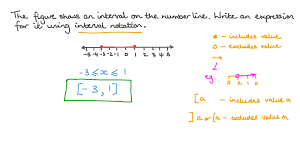 The figure shows an interval on the number line. Write an expression
for it using interval notation.
-5 -4 -3 -2 -1 0 1 2 3 4 5
-3 ≤ x ≤ 1
[-3, 1]
● - includes value
○ - excludes value
eg.
3 2 1 0
[a - includes value a
]a or (a - excludes value a